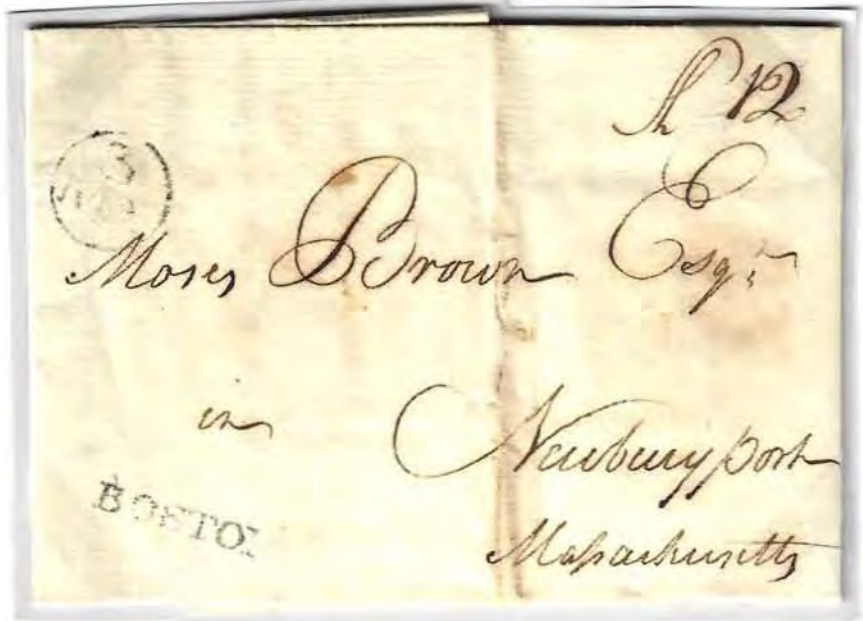 Sh 12
3
Moses Brown Esqr
in Newburyport
BOSTON
Massachusetts